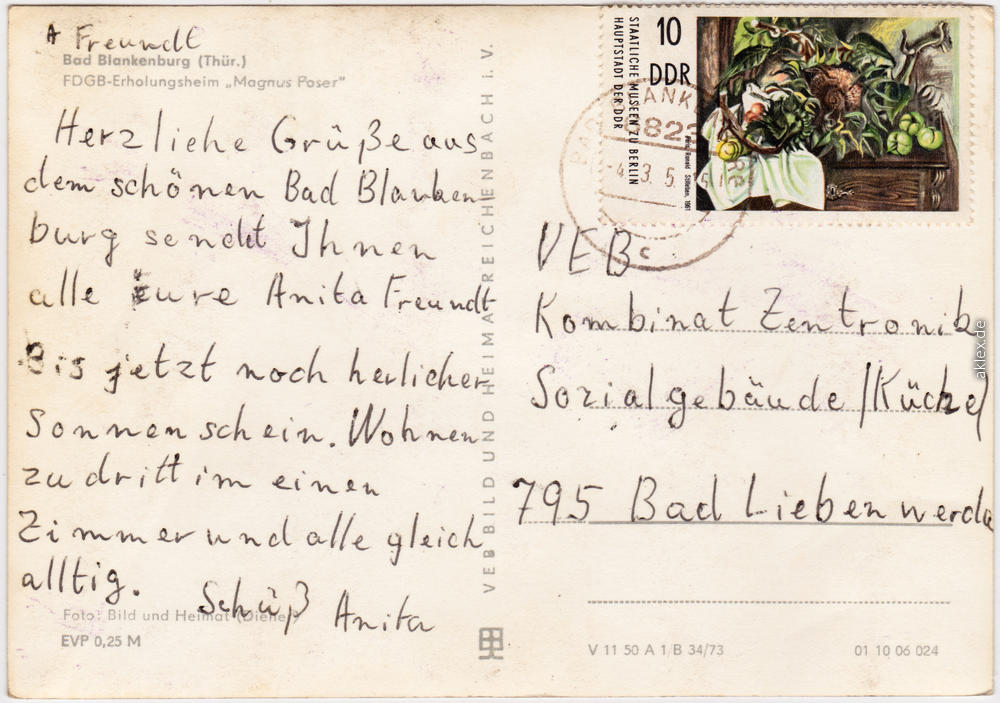 A Freundt
Bad Blankenburg (Thür.)
FDGB-Erholungsheim „Magnus Poser"
Herzliche Grüße aus
dem schönen Bad Blanken
burg sendet Ihnen
alle Eure Anita Freundt
Bis jetzt noch herlicher
Sonnenschein. Wohnen
zu dritt im einen
Zimmer und alle gleich
alltig.
Schüß Anita
Foto: Bild und Heimat (Diener)
EVP 0,25 M
VEB BILD UND HEIMAT REICHENBACH i. V.
STAATLICHE MUSEEN ZU BERLIN
HAUPTSTADT DER DDR
10
DDR
Stilleben, 1961
BAD BLANK
6823
VEB
Kombinat Zentronik
Sozialgebäude /Küche/
795 Bad Liebenwerda
V 11 50 A 1/B 34/73
01 10 06 024
aklex.de